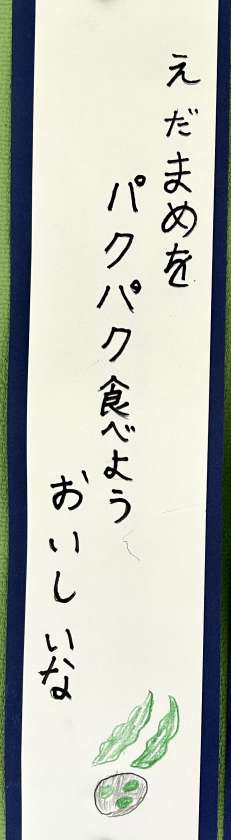 えだまめを
パクパク食べよう
おいしいな